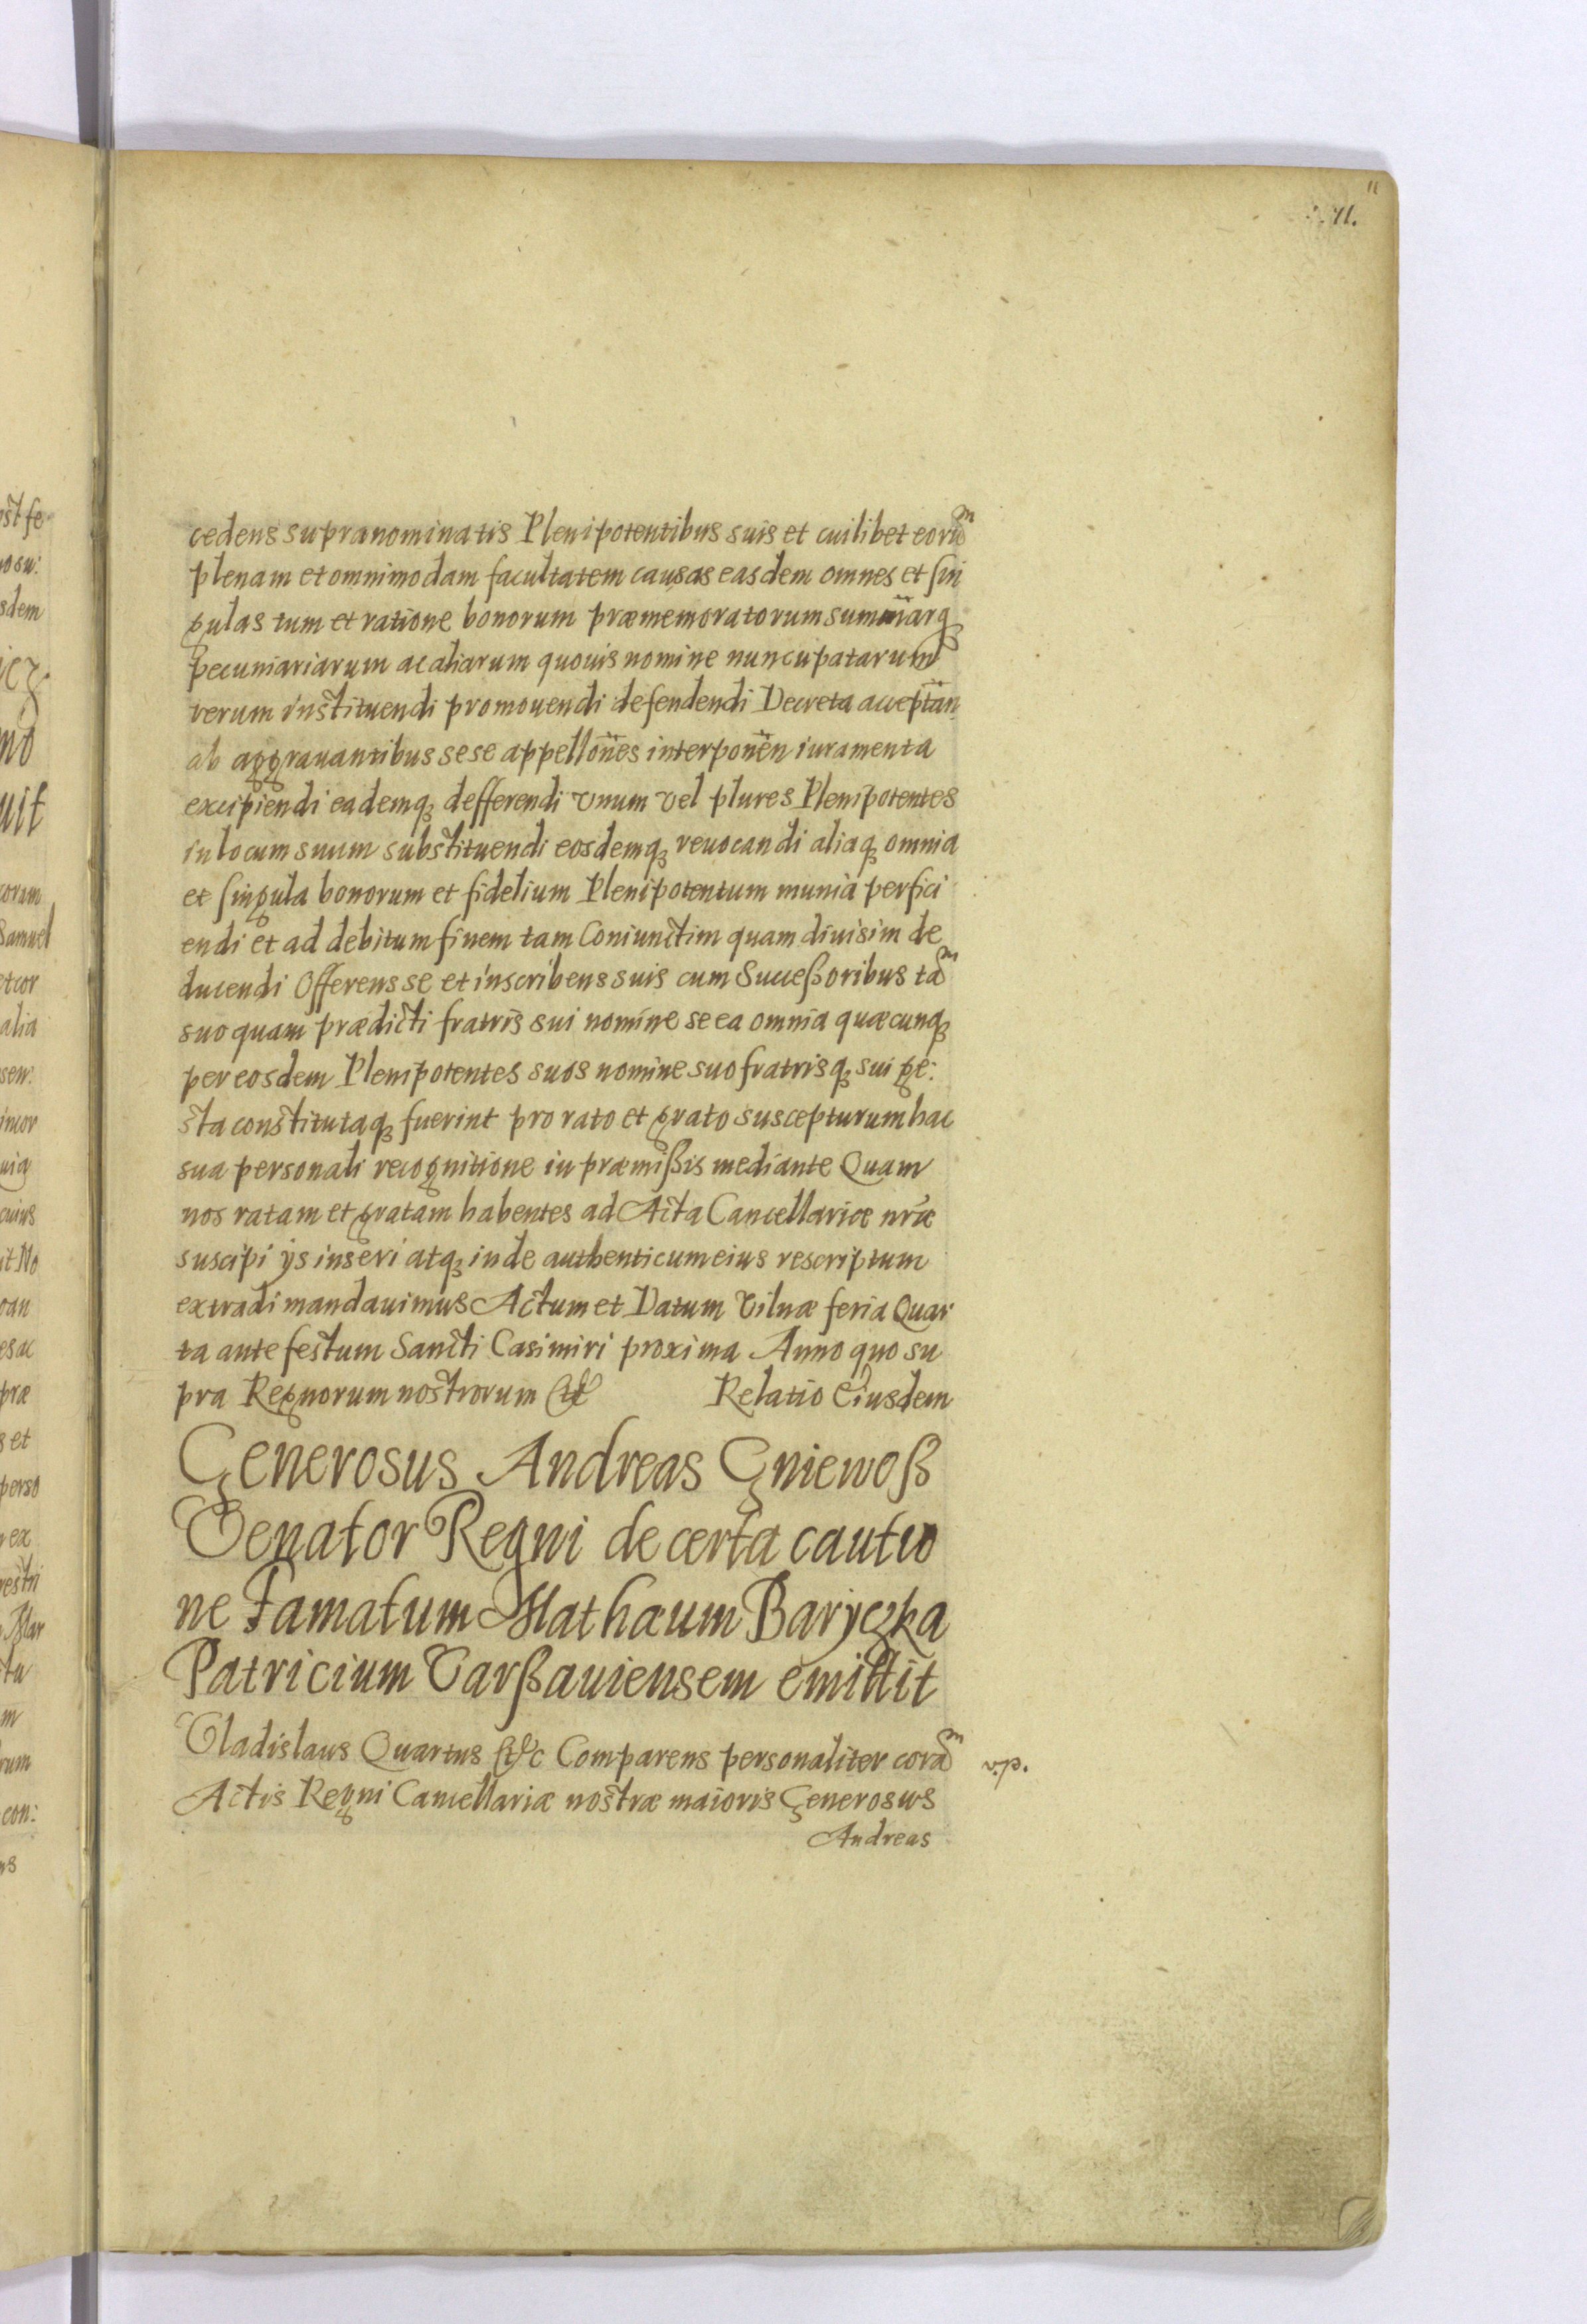 11
11.
cedens supranominatis Plenipotentibus suis et cuilibet eorũm
plenam et omnimodam facultatem causas easdem omnes et sin
gulas tum et ratione bonorum præmemoratorum summarq
pecuniariarum ac aliarum quouis nomine nuncupatarum
rerum instituendi promouendi defendendi Decreta acceptan
ab aggrauantibus sese appellones interponen iuramenta
excipiendi eademq defferendi vnum vel plures Plenipotentes
in locum suum substituendi eosdemq reuocandi aliaq omnia
et singula bonorum et fidelium Plenipotentum munia perfici
endi et ad debitum finem tam Coniunctim quam diuisim de
ducendi Offerens se et inscribens suis cum Succeßoribus tãm
suo quam prædicti fratris sui nomine se ea omnia quæcunq
per eosdem Plenipotentes suos nomine suo fratrisq sui ge:
sta constitutaq fuerint pro rato et grato suscepturum hac
sua personali recognitione in præmißis mediante Quam
nos ratam et gratam habentes ad Acta Cancellariæ nræ
suscipi ijs inseri atq inde authenticum eius rescriptum
extradi mandauimus Actum et Datum Vilnæ feria Quar
ta ante festum Sancti Casimiri proxima Anno quo su
pra Regnorum nostrorum &c Relatio Eiusdem
Generosus Andreas Gniewoß
Venator Regni de certa cautio
ne Famatum Mathæum Baryczka
Patricium Varßauiensem emittit
Vladislaus Quartus &c Comparens personaliter corãm v.p.
Actis Regni Cancellariæ nostræ maioris Generosus
Andreas